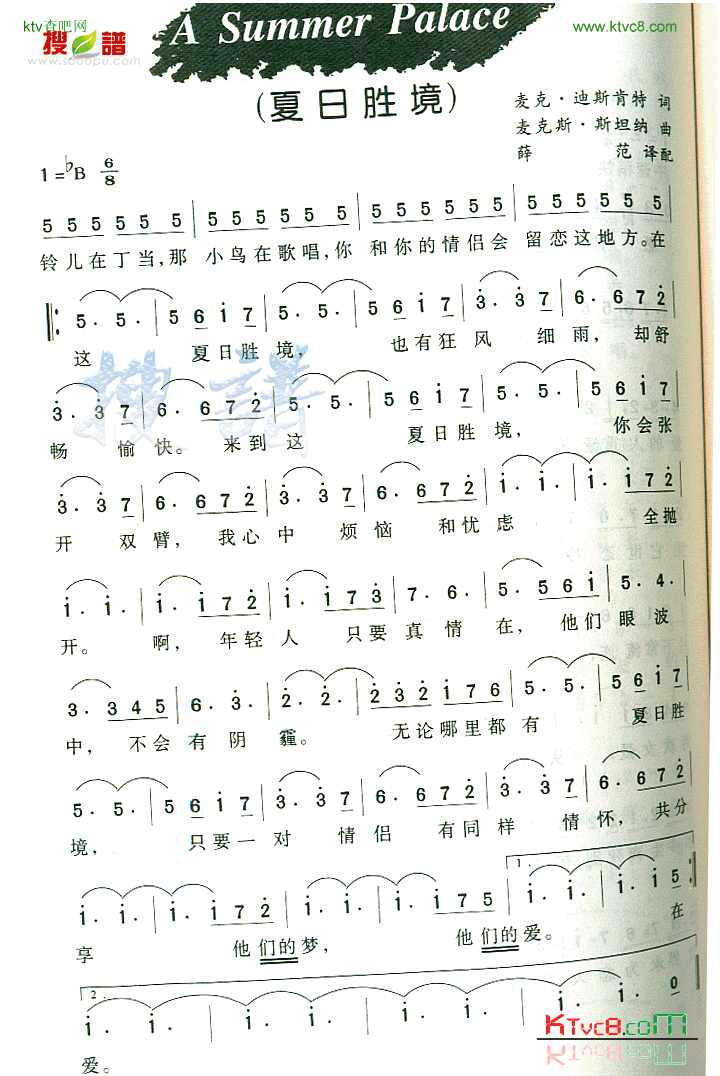 ktv查吧网
搜谱
www.sooopu.com
www.ktvc8.com
A Summer Palace
(夏日胜境)
麦克·迪斯肯特 词
麦克斯·斯坦纳 曲
薛 范 译配
1=♭B 6/8
5 5 5 5 5 5 | 5 5 5 5 5 5 | 5 5 5 5 5 5 | 5 5 5 5 5 5
铃儿在丁当,那 小鸟在歌唱,你 和你的情侣会 留恋这地方。在
5. 5. | 5 6 i 7 | 5. 5. | 5 6 i 7 | 3. 3 7 | 6. 6 7 2
这 夏日胜境, 也有狂风 细雨, 却舒
3. 3 7 | 6. 6 7 2 | 5. 5. | 5 6 i 7 | 5. 5. | 5 6 i 7
畅 愉快。来到这 夏日胜境, 你会张
3. 3 7 | 6. 6 7 2 | 3. 3 7 | 6. 6 7 2 | i. i. | i. i 7 2
开 双臂, 我心中 烦恼 和忧虑 全抛
i. i. | i. i 7 2 | i. i 7 3 | 7. 6. | 5. 5 6 i | 5. 4.
开。 啊, 年轻人 只要真情在, 他们眼波
3. 3 4 5 | 6. 3. | 2. 2. | 2 3 2 i 7 6 | 5. 5. | 5 6 i 7
中, 不会有阴霾。 无论哪里都有 夏日胜
5. 5. | 5 6 i 7 | 3. 3 7 | 6. 6 7 2 | 3. 3 7 | 6. 6 7 2
境, 只要一对 情侣 有同样 情怀, 共分
i. i. | i. i 7 2 | i. i. | i. i 7 5 | 1. i. i. | i. i 5
享 他们的梦, 他们的爱。 在
2. i. i. | i. i. | i. i. | i. 0
爱。
KTvc8.com